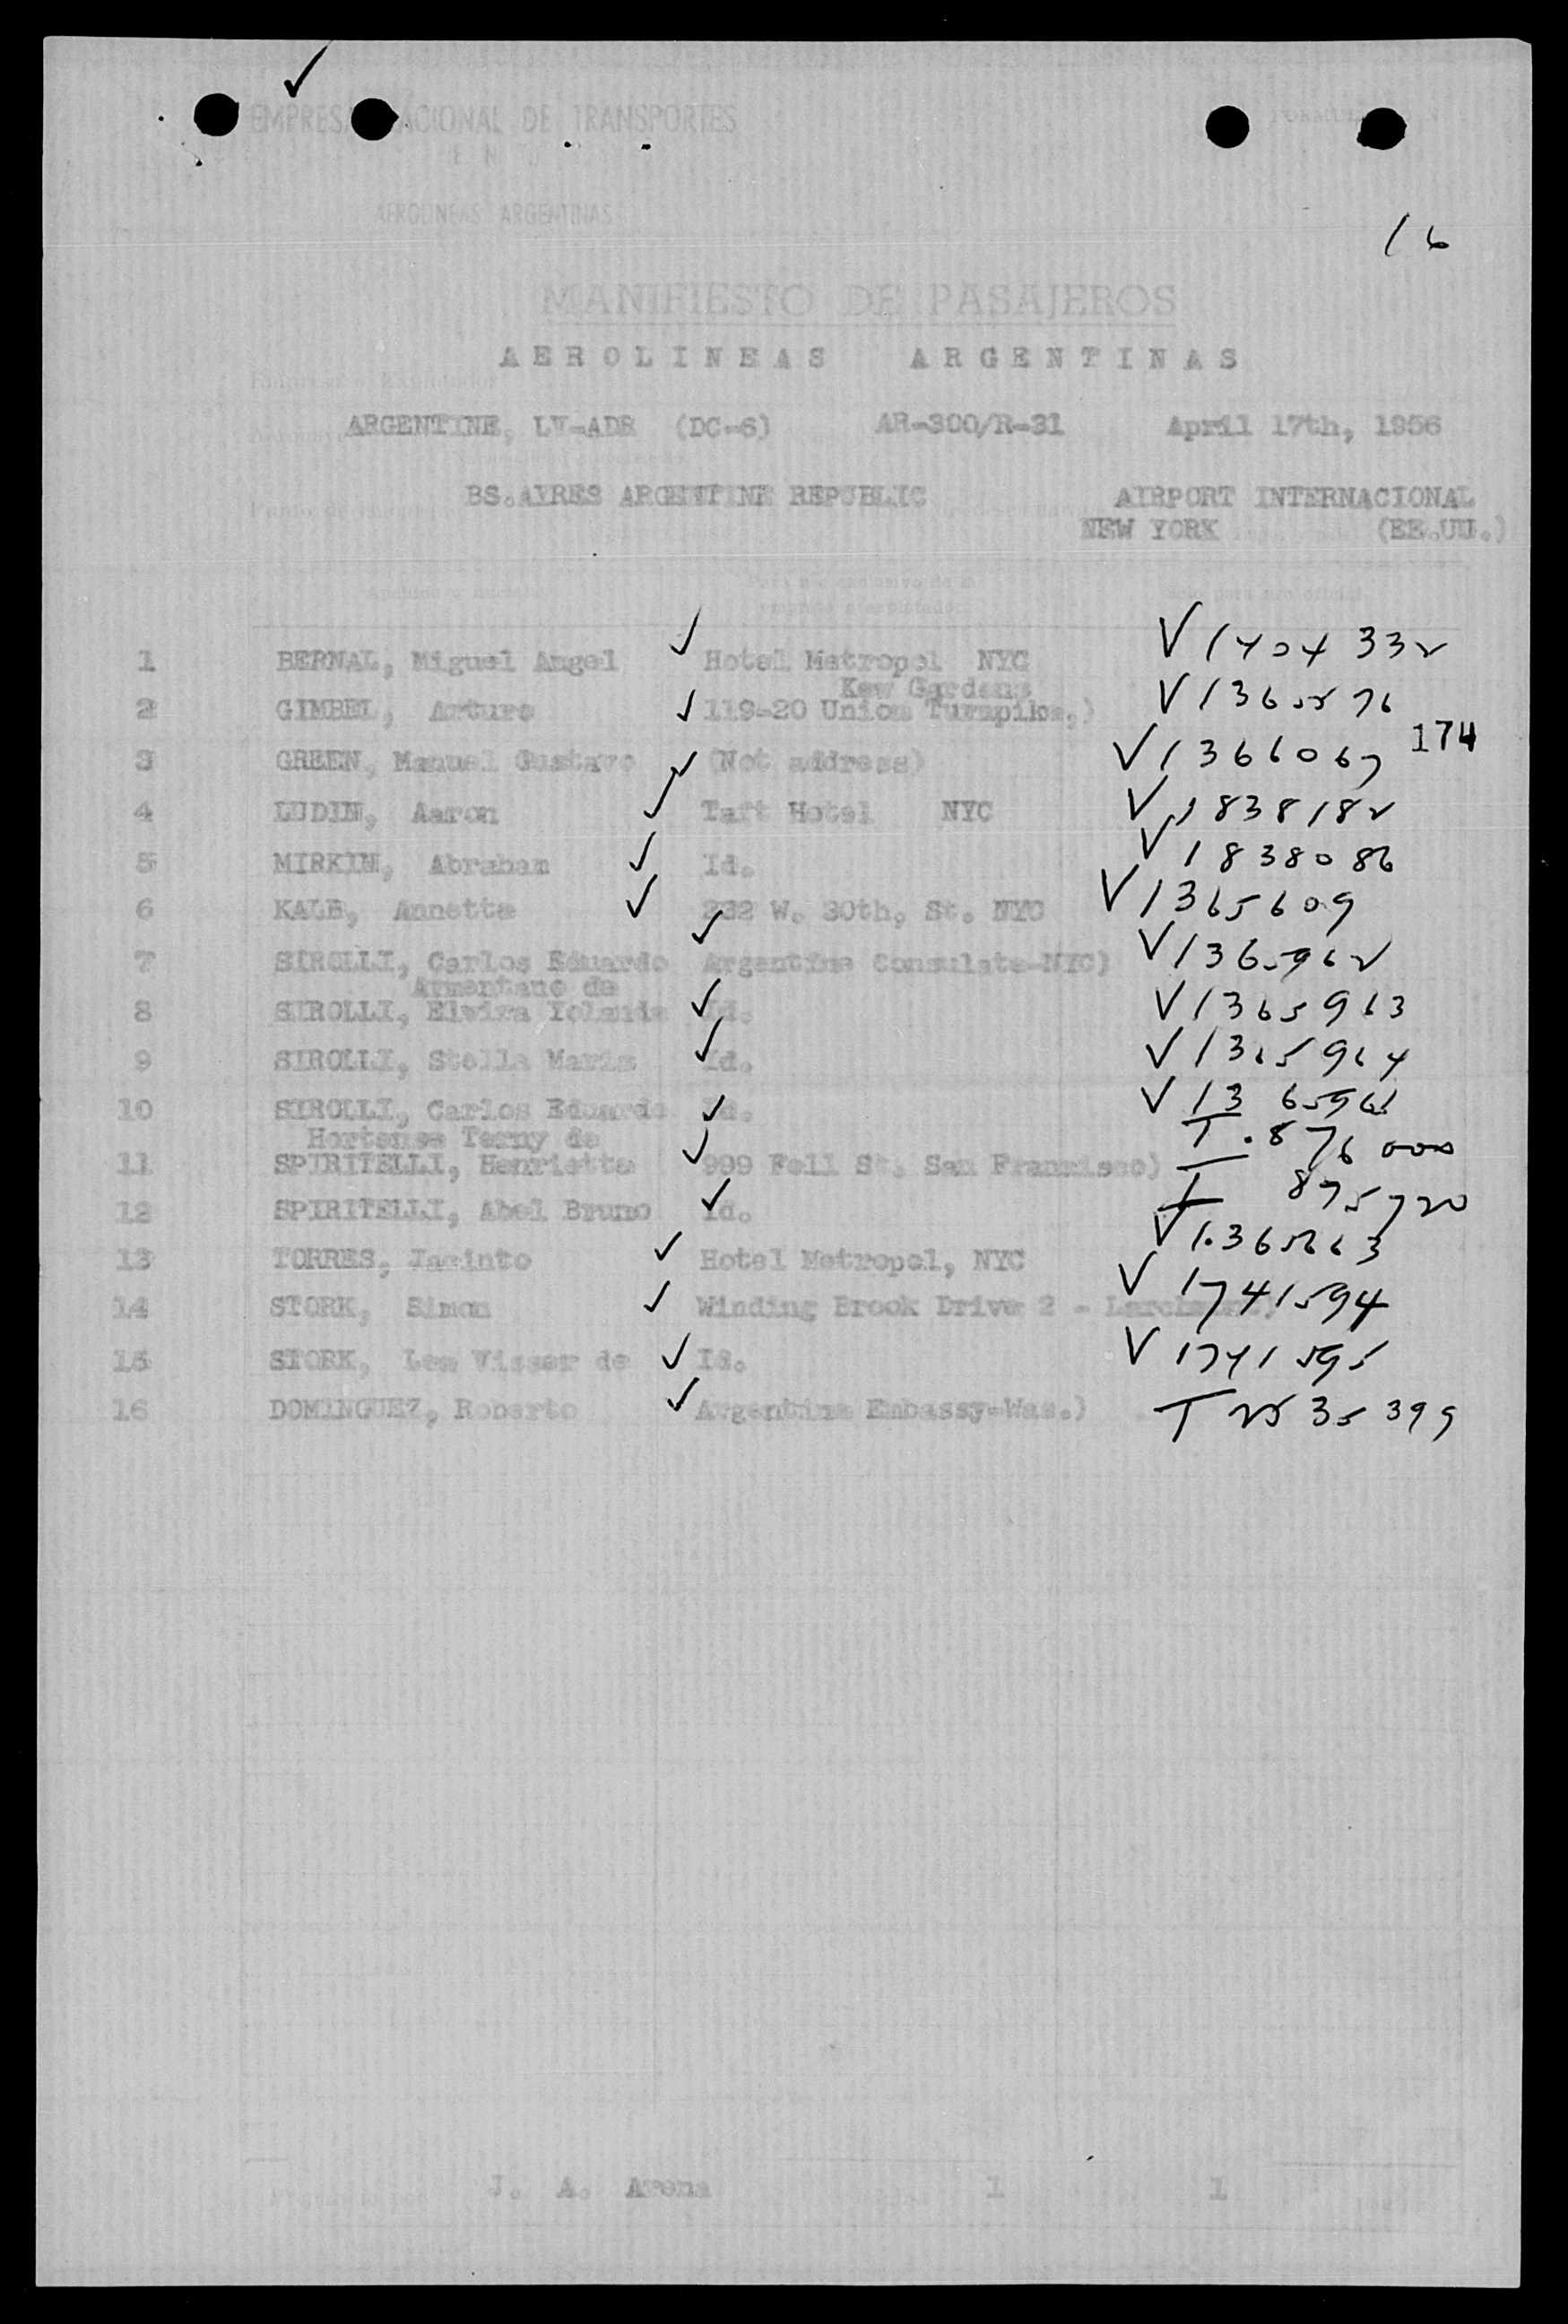 EMPRESA NACIONAL DE TRANSPORTES
AEROLINEAS ARGENTINAS
16
MANIFIESTO DE PASAJEROS
AEROLINEAS ARGENTINAS
ARGENTINE, LV-ADR (DC-6) AR-300/R-31 April 17th, 1956
BS.AYRES ARGENTINE REPUBLIC AIRPORT INTERNACIONAL
NEW YORK (EE.UU.)
1 BERNAL, Miguel Angel ✓ Hotel Metropol NYC V 1404332
Kew Gardens
2 GIMBEL, Arturo ✓ 119-20 Union Turnpike,) V 1365576
174
3 GREEN, Manuel Gustavo ✓ (Not address) V 1366067
4 LUDIN, Aaron ✓ Taft Hotel NYC V 1838182
5 MIRKIN, Abraham ✓ Id. V 1838086
6 KALB, Annette ✓ 232 W. 30th, St. NYC V 1365609
7 SIROLLI, Carlos Eduardo ✓ Argentine Consulate-NYC) V 1365962
Armentano de
8 SIROLLI, Elvira Yolanda ✓ Id. V 1365963
9 SIROLLI, Stella Maris ✓ Id. V 1365964
10 SIROLLI, Carlos Eduardo ✓ Id. V 1365961
Hortense Terny de
11 SPIRITELLI, Henriette ✓ 999 Fell St. San Francisco) T.876000
12 SPIRITELLI, Abel Bruno ✓ Id. T 875720
13 TORRES, Jacinto ✓ Hotel Metropol, NYC V 1.365663
14 STORK, Simon ✓ Winding Brook Drive 2 - Larchmont) V 1741594
15 STORK, Lea Visser de ✓ Id. V 1741595
16 DOMINGUEZ, Roberto ✓ Argentina Embassy-Was.) T 2535399
J. A. Arena 1 1